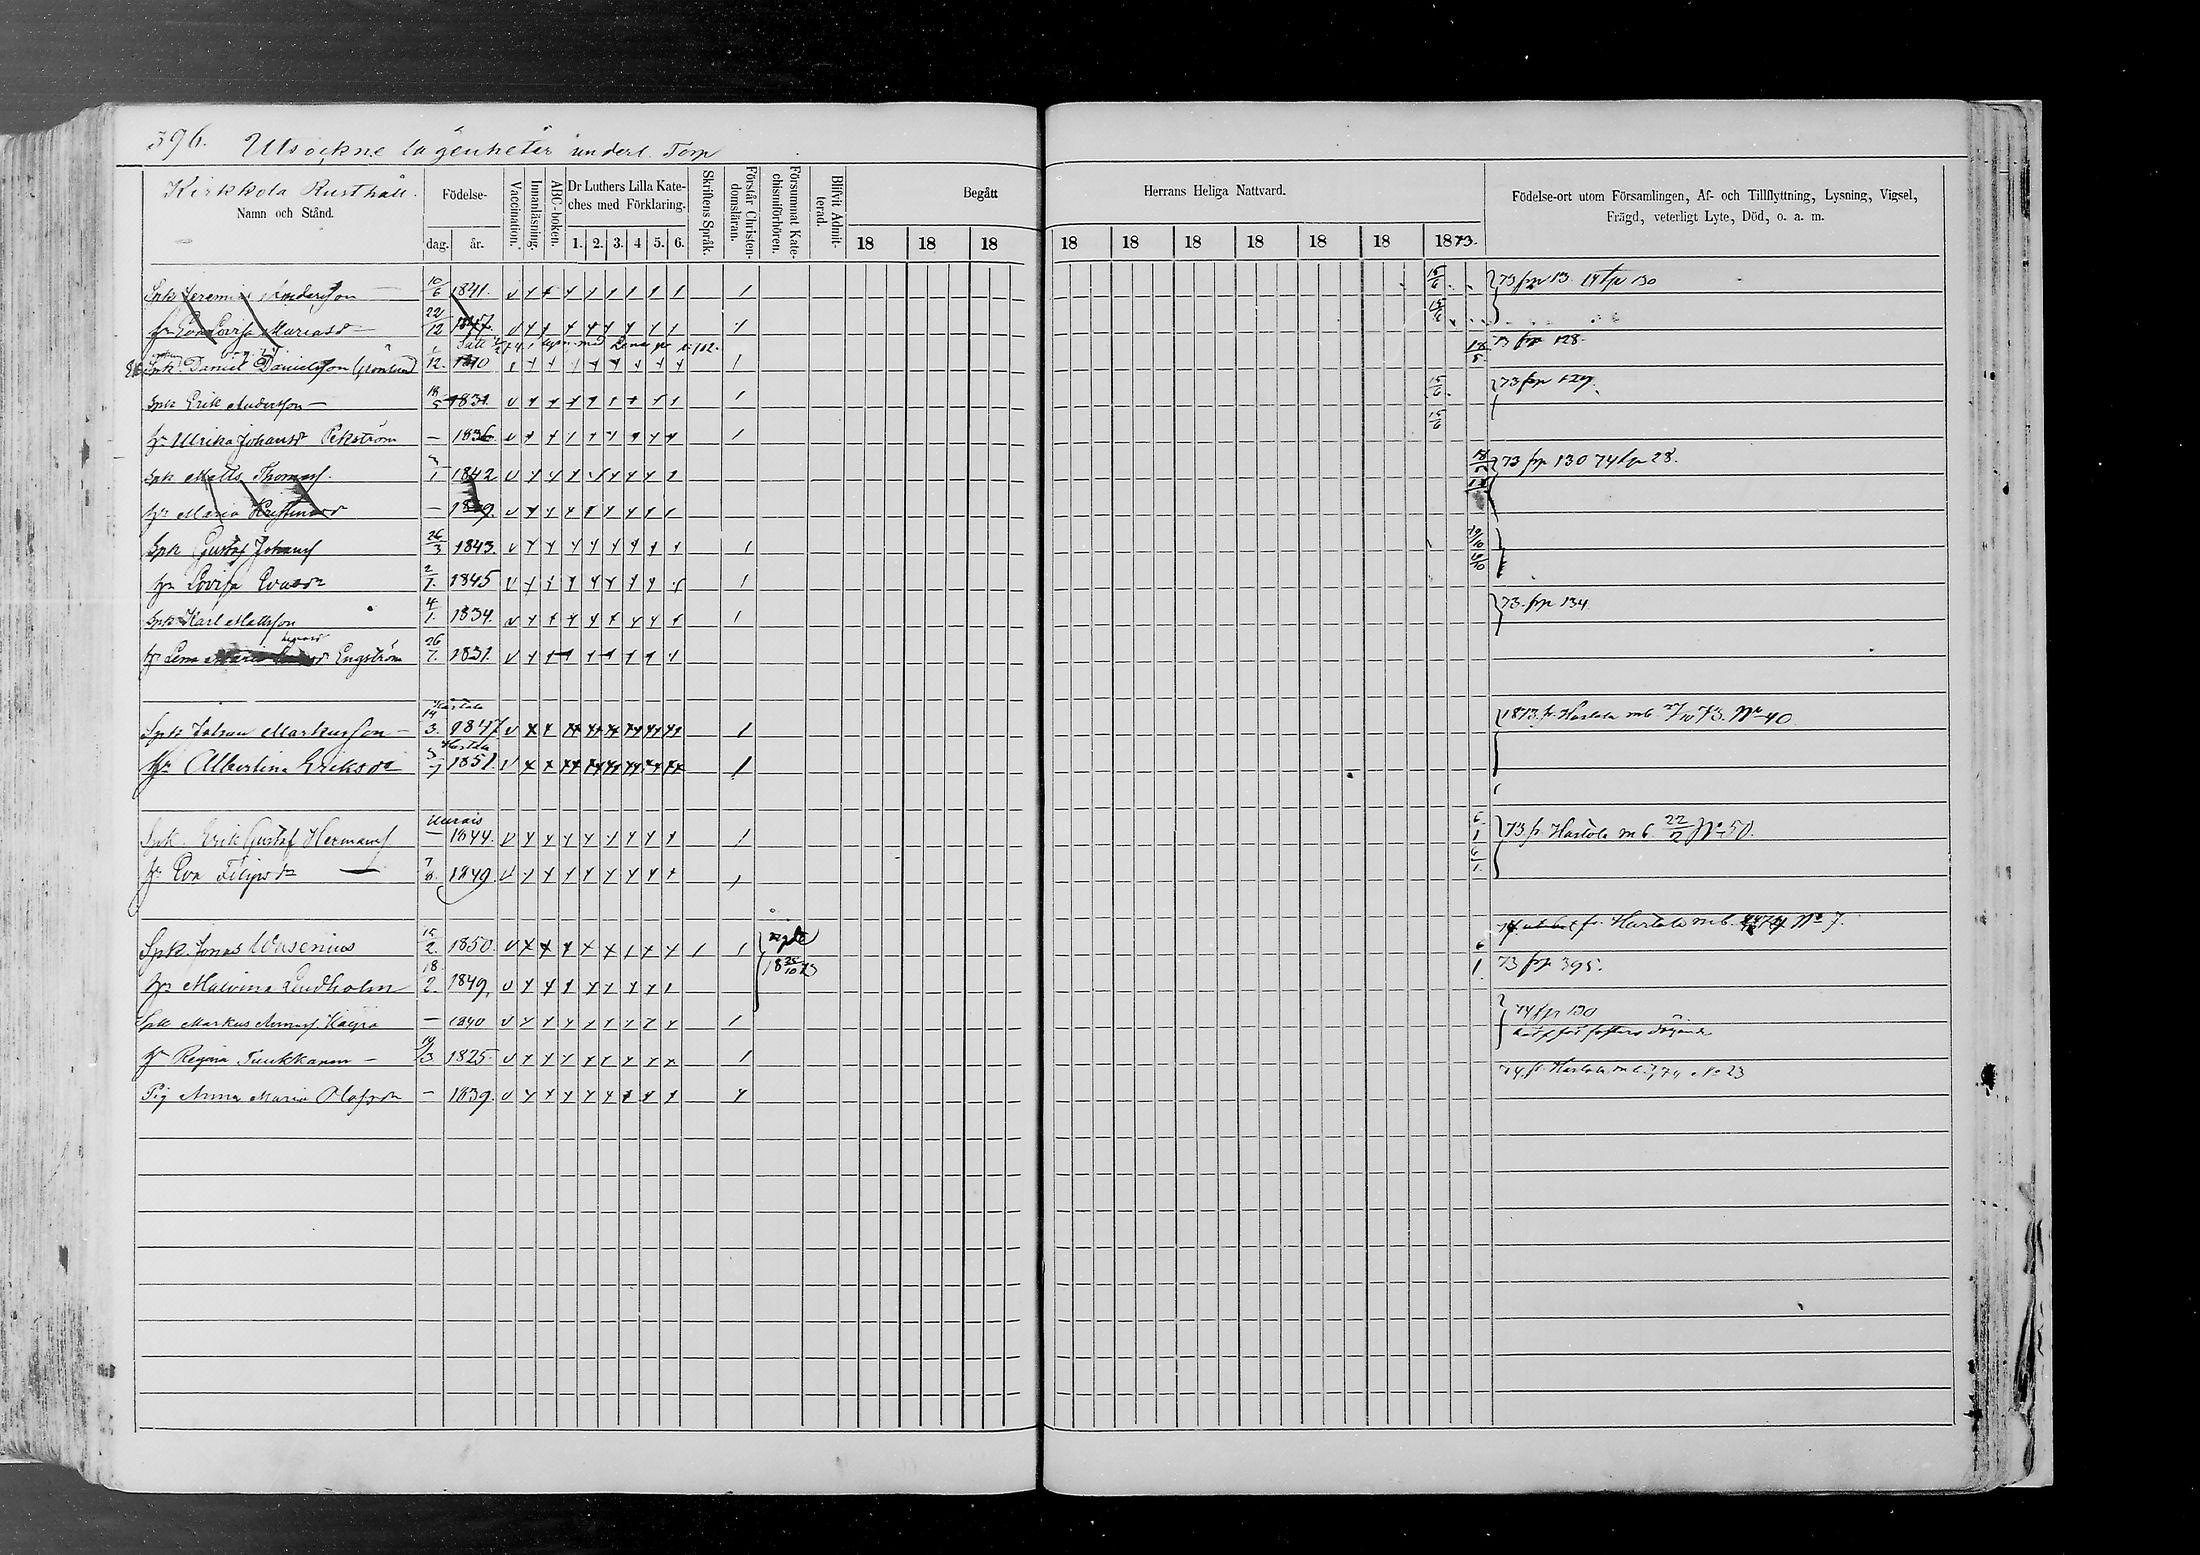 396. Utsockne lägenheter underl. Torp
Kirkkola Rusthåll.
Namn och Stånd.
Födelse-
dag.
år.
Vaccination.
Innanläsning.
ABC-boken.
Dr Luthers Lilla Kate-
ches med Förklaring.
1. 2. 3. 4 5. 6.
Skriftens Språk.
Förstår Christen-
domsläran.
Försummat Kate-
chismiförhören.
Blifvit Admit-
terad.
Begått
18 18 18
Herrans Heliga Nattvard.
18 18 18 18 18 18 1873.
Födelse-ort utom Församlingen, Af- och Tillflyttning, Lysning, Vigsel,
Frägd, veterligt Lyte, Död, o. a. m.
Spk Jeremias Andersson 10/6 1841. v 15/6 73 frp 13. 74 tp 130
hr Eva Lovisa Mariasdr 22/12 1847. v 15/6
Spk Daniel Danielsson Grönlund 1/12. 1840 18/5. 73 frp 128.
Spk Erik Andersson 18/5 1831. v 15/6 73 frp 129.
hr Ulrika Johansdr Ekström — 1836 v 15/6
Spk Matts Thomass. 1842 v 73 frp 130 74 tp 28.
hr Maria Kristinasdr — 1849. v
Spk Gustaf Johanss 26/3 1843. v 19/10
hr Lovisa Evasdr 2/1. 1845 v 19/10
Spk Karl Mattsson 4/1. 1834. v 73. frp 134
hr Lena Engström 26/7. 1831. v
Hartola
Spk Johan Markusson 14/3. 1847 v 1873 fr. Hartola mb. 27/10 73. No 40
Hartola
hr Albertina Eriksdr 5/7 1851. v
Uurais
Spk. Erik Gustaf Hermanss — 1844. v 6/1 73 fr. Hartola mb. 22/12 No 50.
hr Eva Filipsdr 7/8. 1849 v 6/1.
Spk. Jonas Wasenius 15/2. 1850. v fr. Hartola mb. No 7.
18 28/10 73
hr Malvina Lindholm 18/2. 1849. v 6/1. 73 frp 395.
Spk Markus — 1840 v 74 fr 130
hr Regina Tuukkanen 19/3 1825. v
Pig Anna Maria Olofsdr — 1839. v 74. fr. Hartola 74 No 23